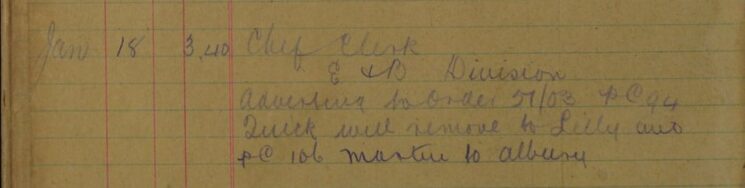 Jan 18 3.40 Chef Clerk
E & B Division
Adverting to order 27/03 PC 94
Quick will remove to Lilly and
PC 106 Martin to Albury